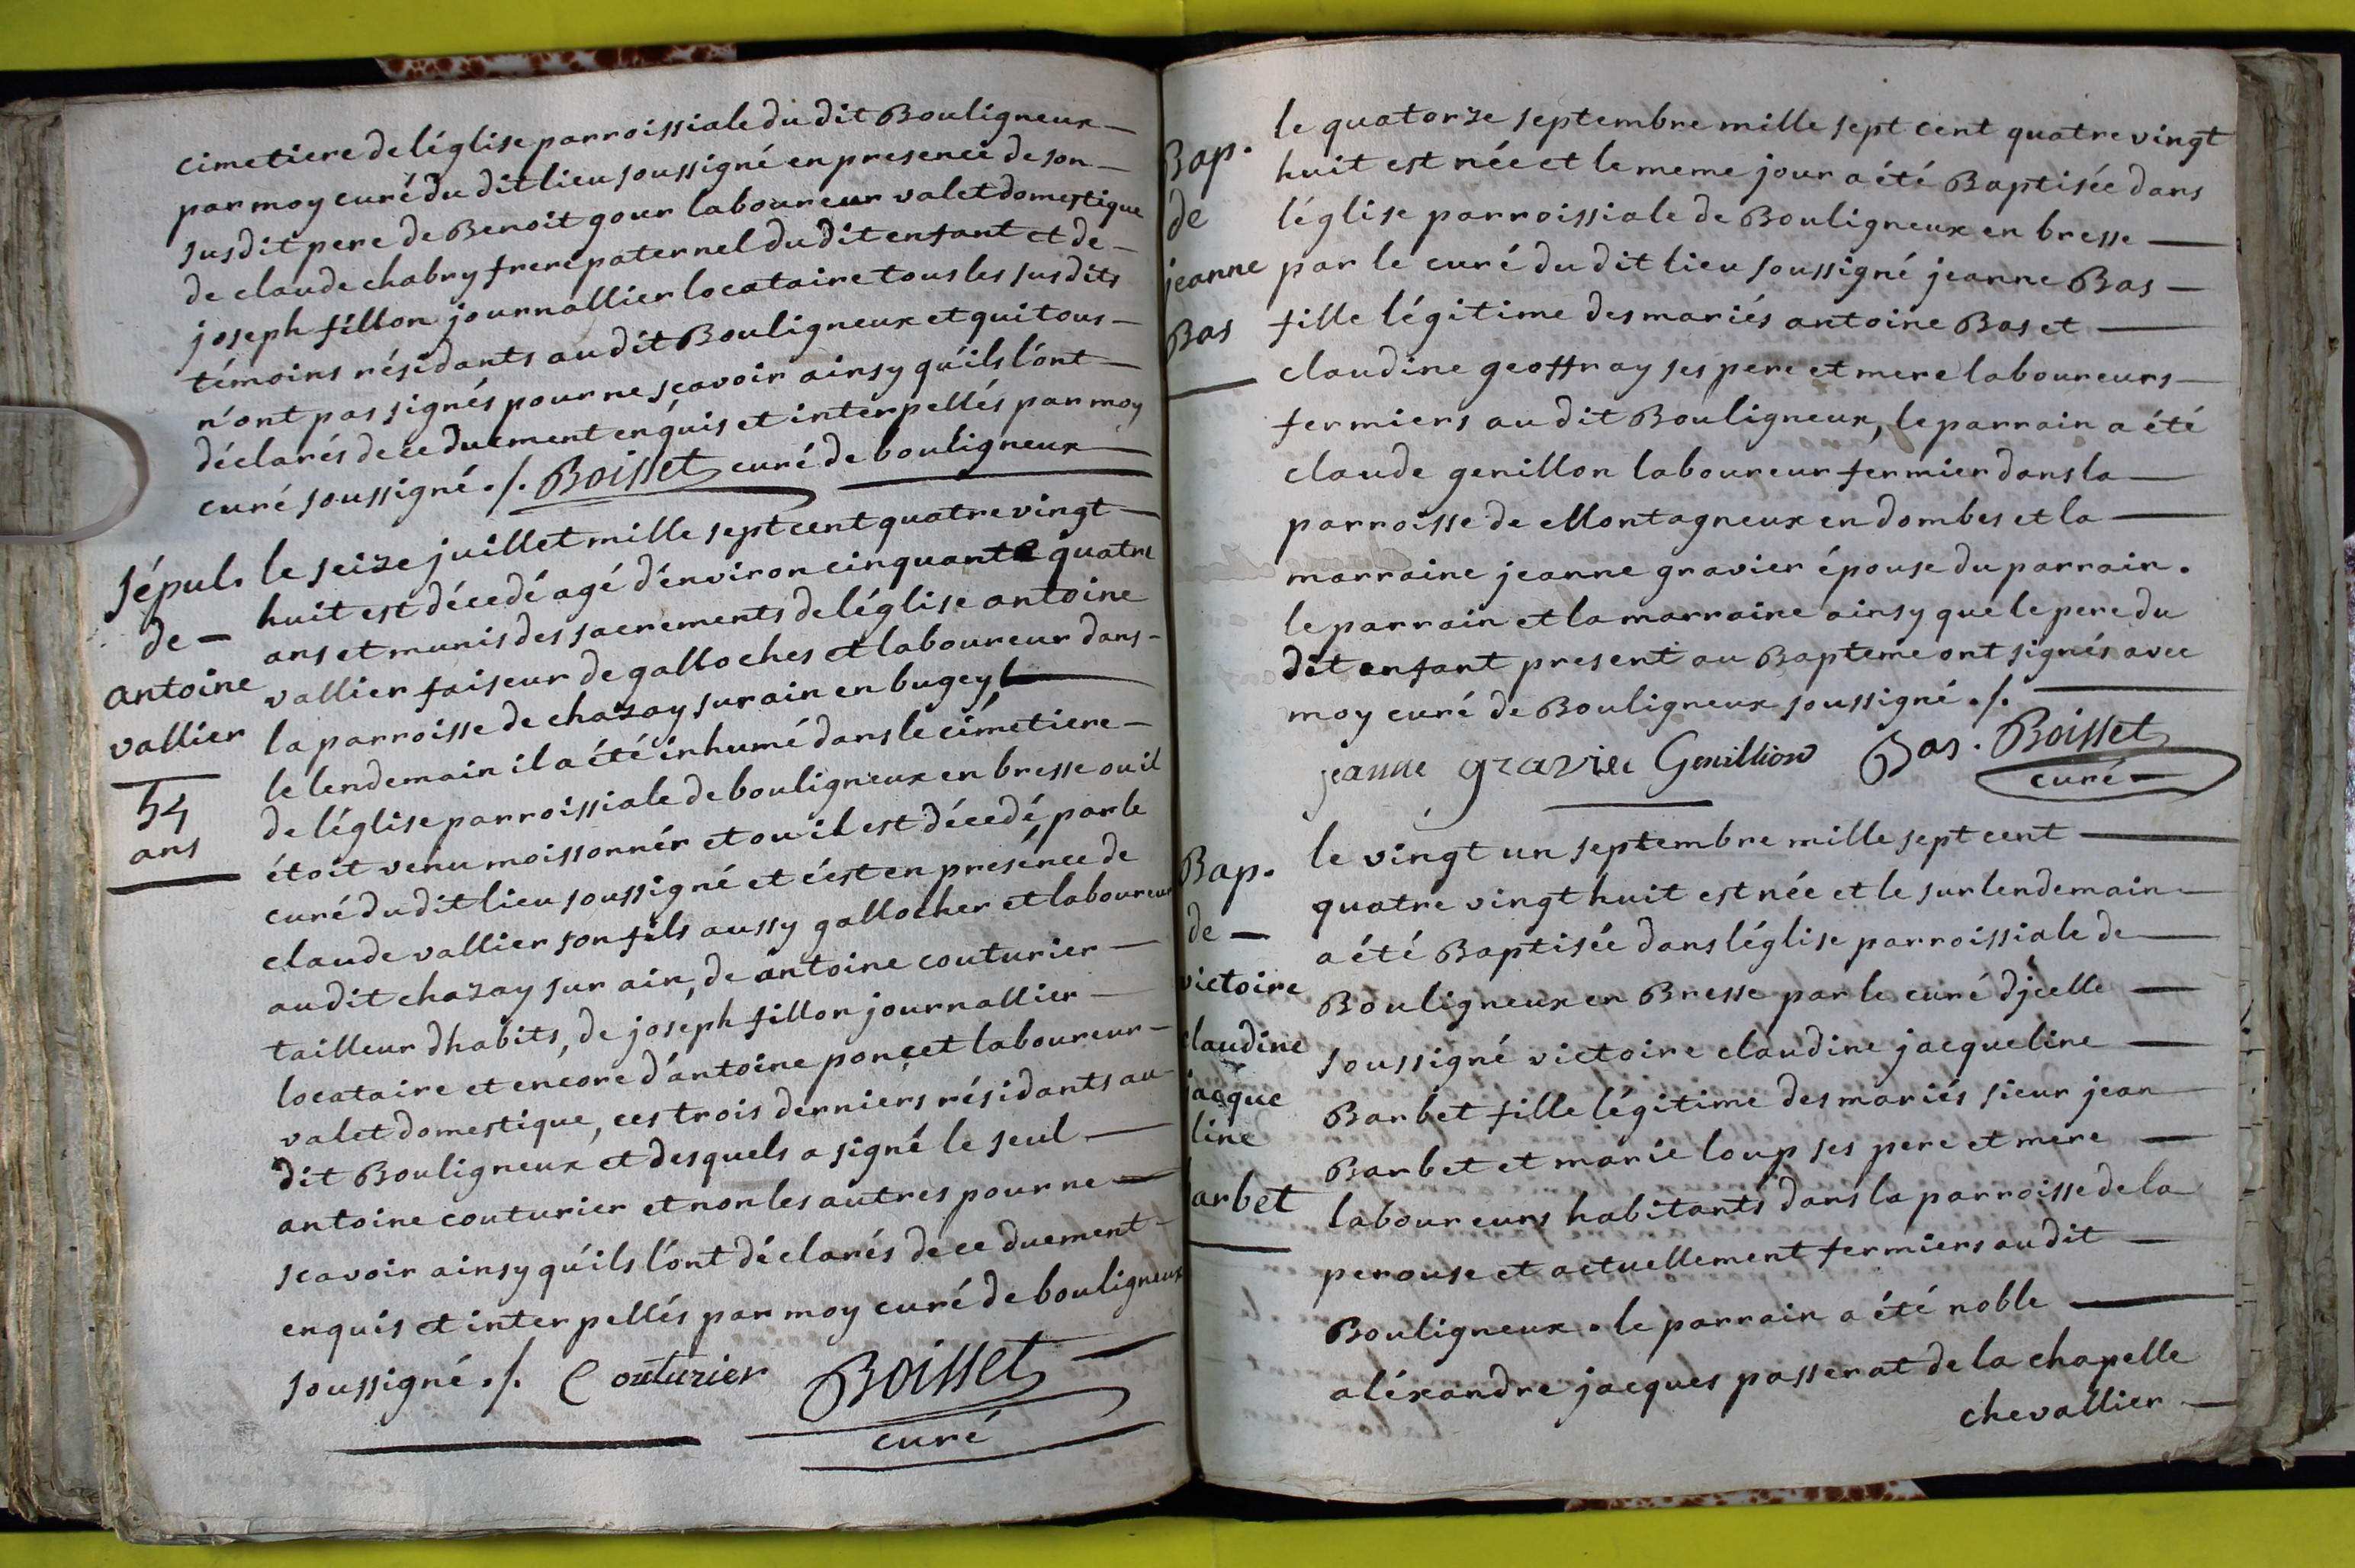 cimetiere de léglise parroissiale du dit Bouligneux
par moy curé du dit lieu soussigné en presence de son
susdit pere de Benoit gour laboureur valet domestique
de claude chabry frere paternel du dit enfant et de
joseph fillon journallier locataire tous les susdits
témoins résidants au dit Bouligneux et qui tous
n'ont pas signés pour ne sçavoir ainsy qu'ils l'ont
déclarés de ce duement enquis et interpellés par moy
curé soussigné ./. Boisset curé de bouligneux
Sépul.
de
antoine
vallier
54
ans
le seize juillet mille sept cent quatre vingt
huit est décedé agé d'environ cinquante quatre
ans et munis des sacrements de léglise antoine
vallier faiseur de galloches et laboureur dans
la parroisse de chazay sur ain en bugey
le lendemain il a été inhumé dans le cimetiere
de léglise parroissiale de bouligneux en bresse ou il
étoit venu moissonnér et ou il est décedé, par le
curé du dit lieu soussigné et c'est en presénce de
claude vallier son fils aussy gallocher et laboureur
au dit chazay sur ain, de antoine couturier
tailleur dhabits, de joseph fillon journallier
locataire et encore d'antoine ponçet laboureur
valet domestique, ces trois derniers résidants au
dit Bouligneux et desquels a signé le seul
antoine couturier et non les autres pour ne
scavoir ainsy qu'ils l'ont déclarés de ce duement
enquis et interpellés par moy curé de bouligneux
soussigné ./. Couturier Boisset
curé
Bap.
de
jeanne
Bas
le quatorze septembre mille sept cent quatre vingt
huit est née et le meme jour a été Baptisée dans
léglise parroissiale de Bouligneux en bresse
par le curé du dit lieu soussigné jeanne Bas
fille légitime des mariés antoine Bas et
claudine geoffray ses pere et mere laboureurs
fermiers au dit Bouligneux, le parrain a été
claude genillon laboureur fermier dans la
parroisse de Montagneux en dombes et la
marraine jeanne gravier épouse du parrain.
le parrain et la marraine ainsy que le pere du
dit enfant present au Bapteme ont signés avec
moy curé de Bouligneux soussigné ./.
jeanne gravier Genillion Bas. Boisset
curé
Bap.
de
victoire
claudine
jacque
line
barbet
le vingt un septembre mille sept cent
quatre vingt huit est née et le surlendemain
a été Baptisée dans léglise parroissiale de
Bouligneux en Bresse par le curé djcelle
soussigné victoire claudine jacqueline
Barbet fille légitime des mariés sieur jean
Barbet et marie loup ses pere et mere
laboureurs habitants dans la parroisse de la
perouse et actuellement fermiers au dit
Bouligneux. le parrain a été noble
aléxandre jacques passerat de la chapelle
chevallier